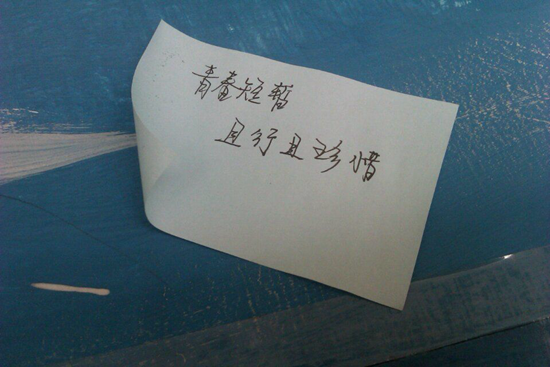 青春短暂
且行且珍惜